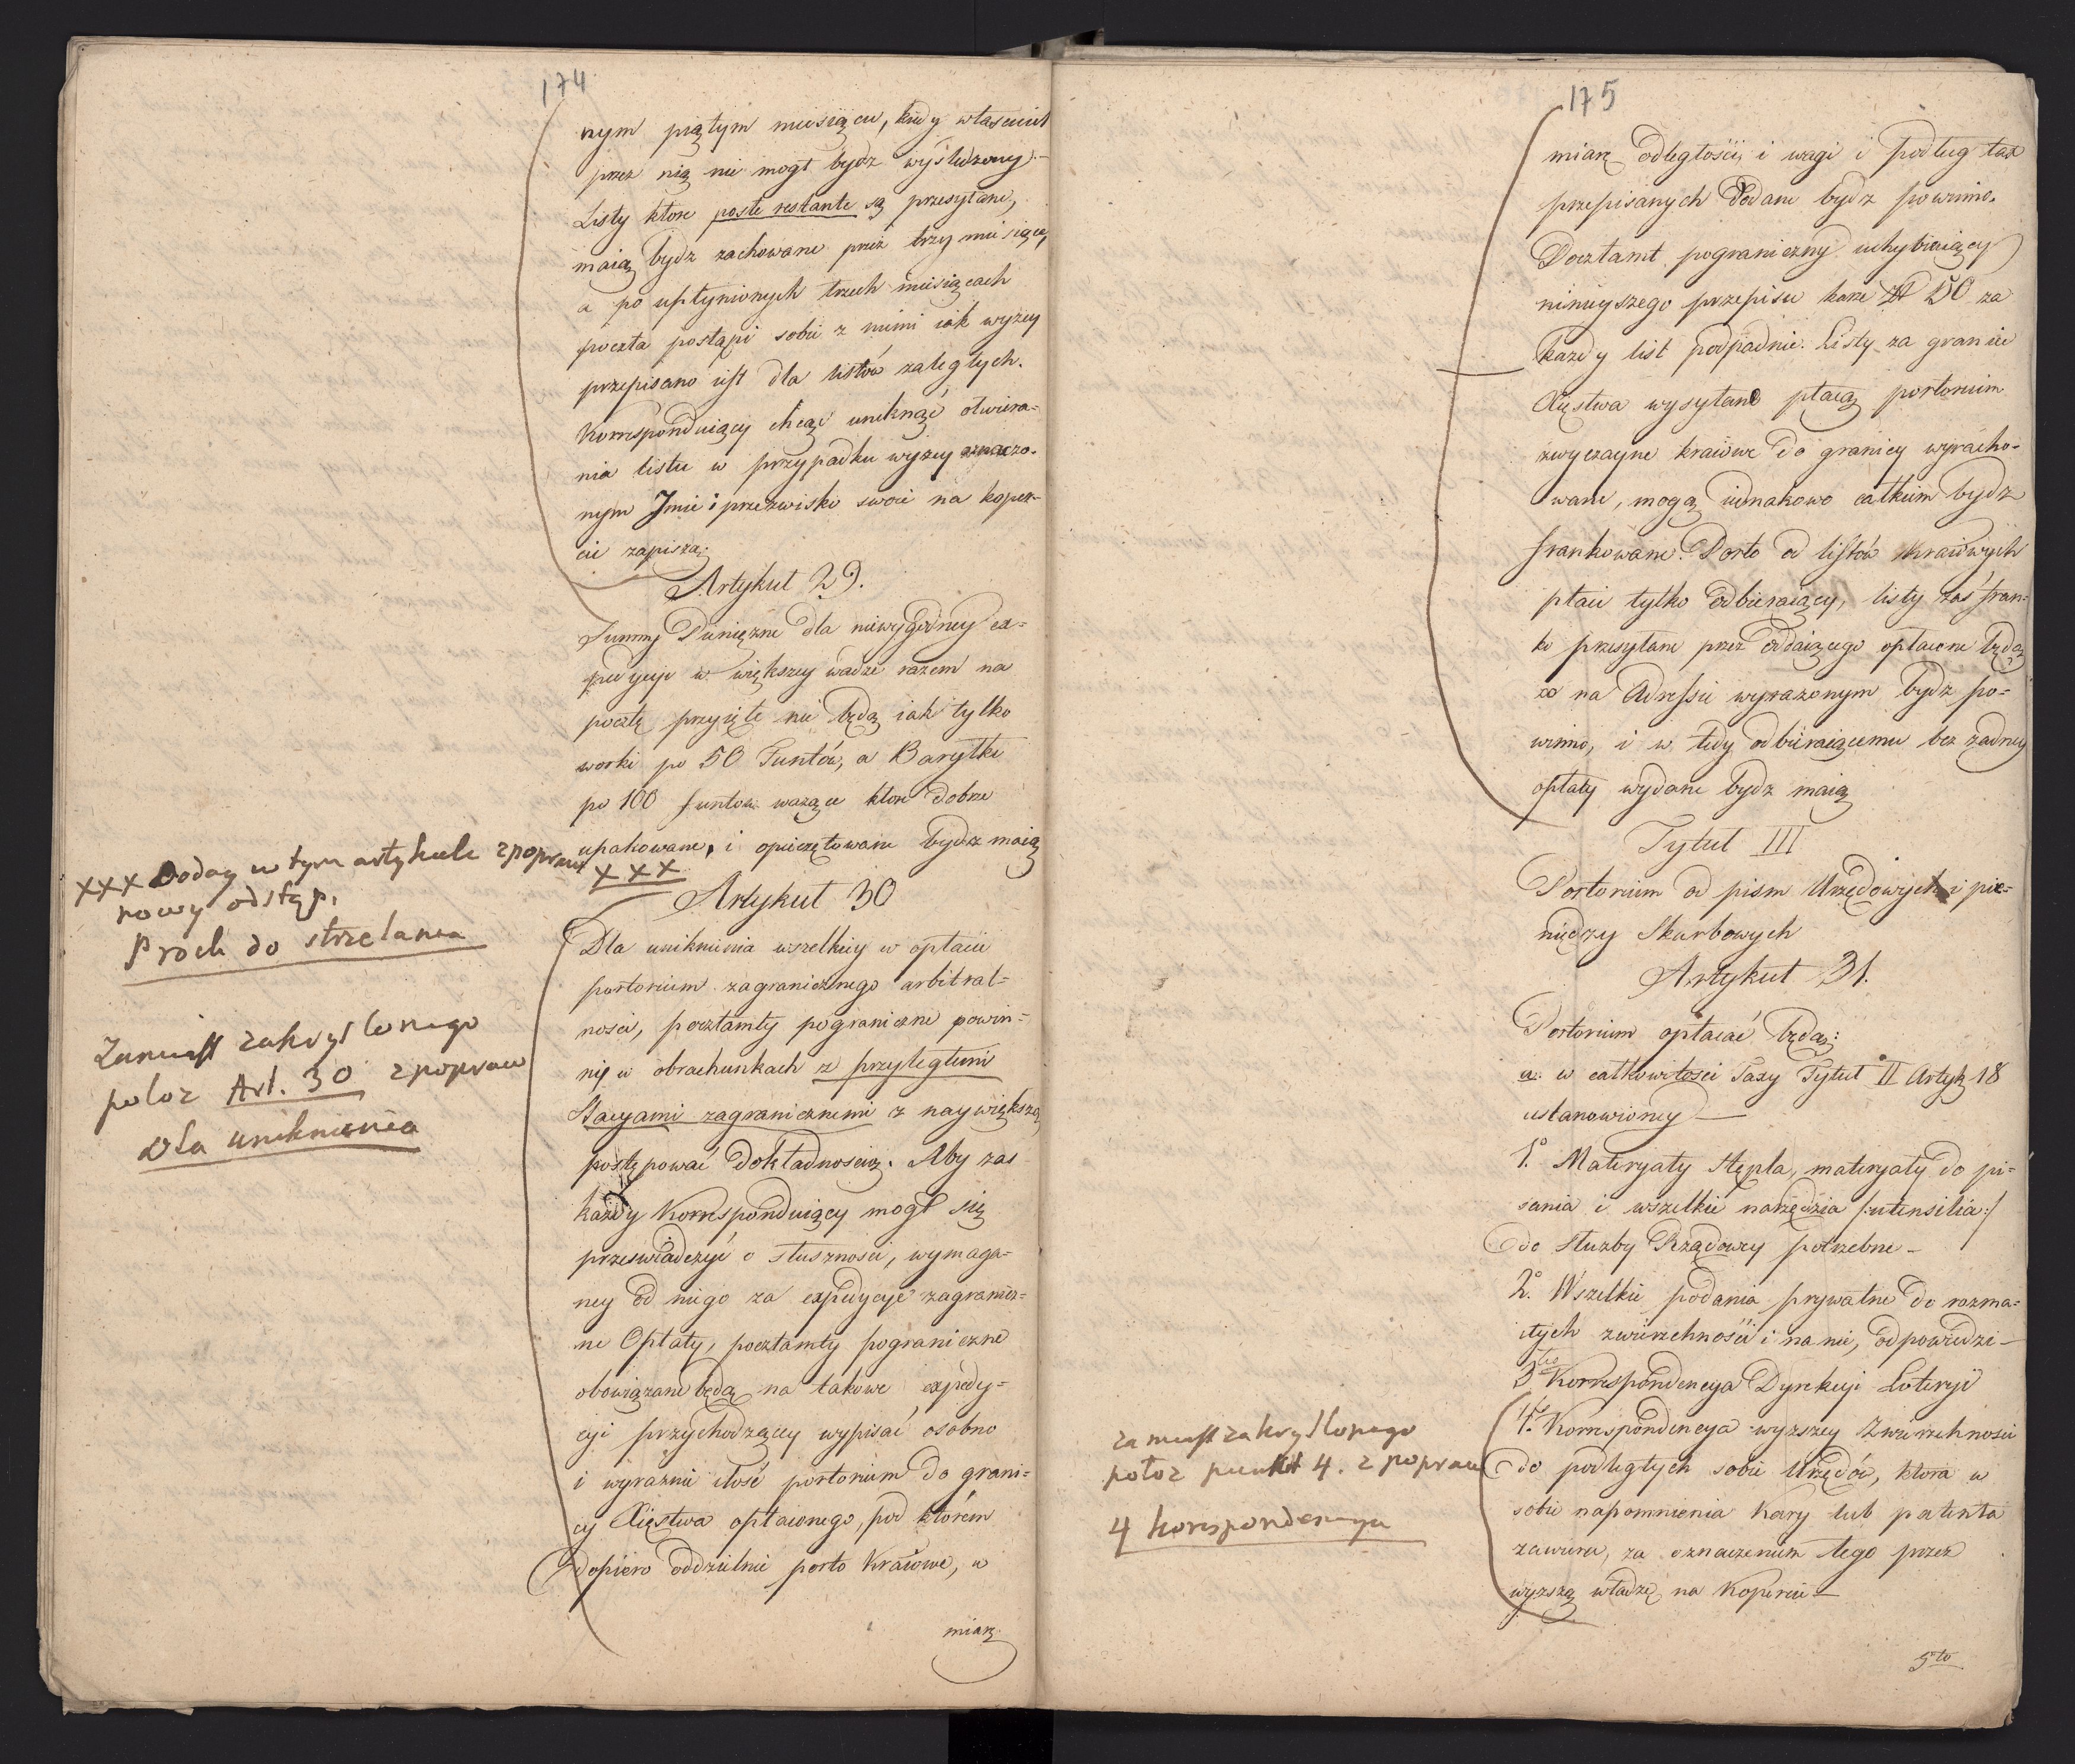 174
nym piątym miesiącu, kiedy własciciel
przez nią nie mogł bydź wyśledzony.–
Listy ktore poste restante są przesyłane,
maią bydź zachowane przez trzy miesiące,
a po upłynionych trzech miesiącach
poczta postąpi sobie z niemi iak wyżey
przepisano iest dla listów zaległych.
Korrespondujący chcąc uniknąć otwiera-
nia listu w przypadku wyżey oznaczo-
nym Jmie i przezwisko swoie na koper-
cie zapiszą.
Artykuł 29.
Summy Pienięzne dla niewygodney ex-
pedycyi w większey wadze razem na
pocztę przyięte nie będą iak tylko
worki po 50 Funtów, a Baryłki
po 100 funtow ważące ktore dobrze
upakowane, i opieczętowane bydź maią
xxx
xxx Doday w tym artykule z popraw
nowy odstęp.
Proch do strzelania
Artykuł 30
Dla uniknienia wszelkiey w opłacie
portorium zagranicznego arbitral-
nosci, pocztamty pograniczne powin-
ny w obrachunkach z przyległemi
Stacyami zagranicznemi z naywiększą
postępować Dokładnoscią. Aby zas
każdy Korrespondujący mogł się
przeswiadczyć o słusznosci, wymaga-
ney od niego za expedycye zagranicz-
ne Opłaty, pocztamty pograniczne
obowiązane będą na takowe expedy-
cyi przychodzącey wypisać osobno
i wyraznie ilość portorium do grani-
cy Xięstwa opłaconego, pod którem
dopiero oddzielnie porto Kraiowe, w
miarę
Zamiast zakryslonego
połoz Art. 30 z popraw
Dla uniknienia
175
miarę odległości, i wagi i podług tax
przepisanych Dodane bydź powinno.
Pocztamt pograniczny uchybiaiący
ninieyszego przepisu karze Zł 50 za
każdy list podpadnie. Listy za granice
Xięstwa wysyłane płacą portorium
zwyczayne kraiowe do granicy wyracho-
wane, mogą iednakowo całkiem bydź
frankowane. Porto od listów Kraiowych
płaci tylko odbieraiący, listy zaś fran-
ko przesyłane przez oddaiącego opłacone będą
co na Adressie wyrazonym bydź po-
winno, i w tedy odbieraiącemu bez żadney
opłaty wydane bydź maią
Tytuł III
Portorium od pism Urzędowych i pie-
niędzy Skarbowych
Artykuł 31.
Portorium opłacać będą:
a. w całkowitosci Taxy Tytuł II Artyk 18
ustanowioney —
1.° Materyały stępla, materyały do pi-
sania i wszelkie narzędzia /:utensilia:/
do służby Rządowey potrzebne –
2.° Wszelkie podania prywatne do rozma-
itych zwierzchności i na nie, odpowiedzi –
3tio Korrespondencya Dyrekcyi Loteryi
4to Korrespondencya wyzszey Zwierzchnosci
do podległych sobie Urzędów, ktora w
sobie napomnienia Kary lub patenta
zawiera, za oznaczeniem tego przez
wyzszą władzę na Kopercie —
5to
zamiast zakryslonego
połoz punkt 4. z popraw
4 korespondencya